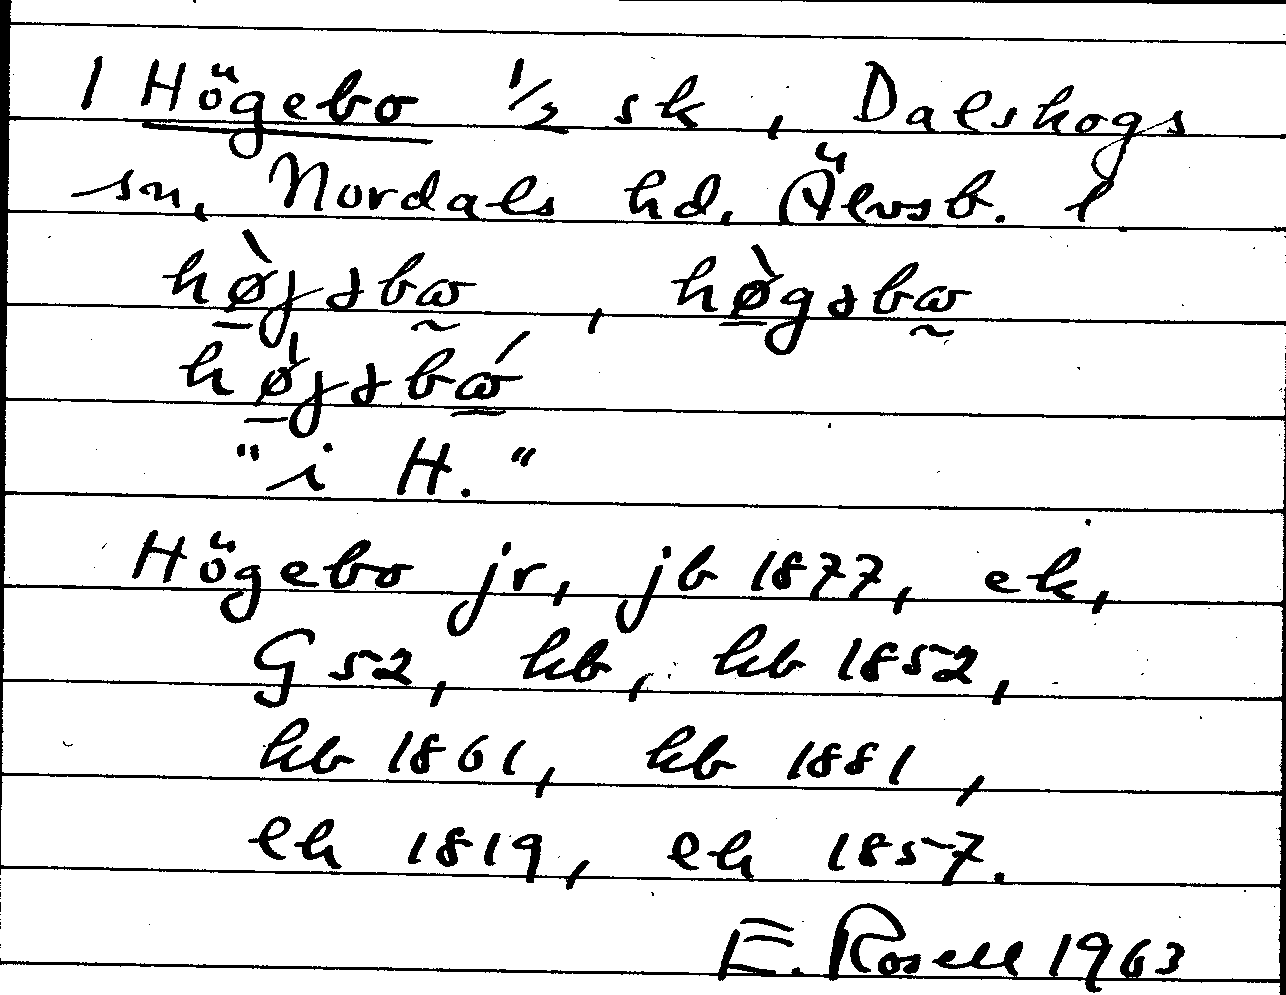 1 Högebo 1/2 sk, Dalskogs
sn, Nordals hd. Älvsb. l
hø̀jəbɷ, hø̀gəbɷ
hø̀jəbɷ́
"i H."
Högebo jr, jb 1877, ek,
G 52, kb, kb 1852,
kb 1861, kb 1881,
eh 1819, eh 1857.
E. Rosell 1963